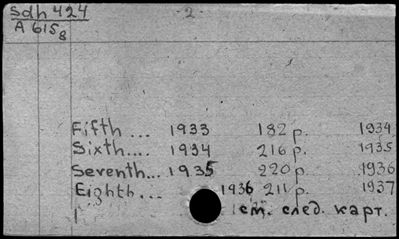 Sdh 424
A 615 8
- 2 -
Fifth ... 1933 182 p. 1934
Sixth.... 1934 216 p. 1935
Seventh... 1935 220 p. 1936
Eighth... 1936 211 p. 1937
см. след. карт.